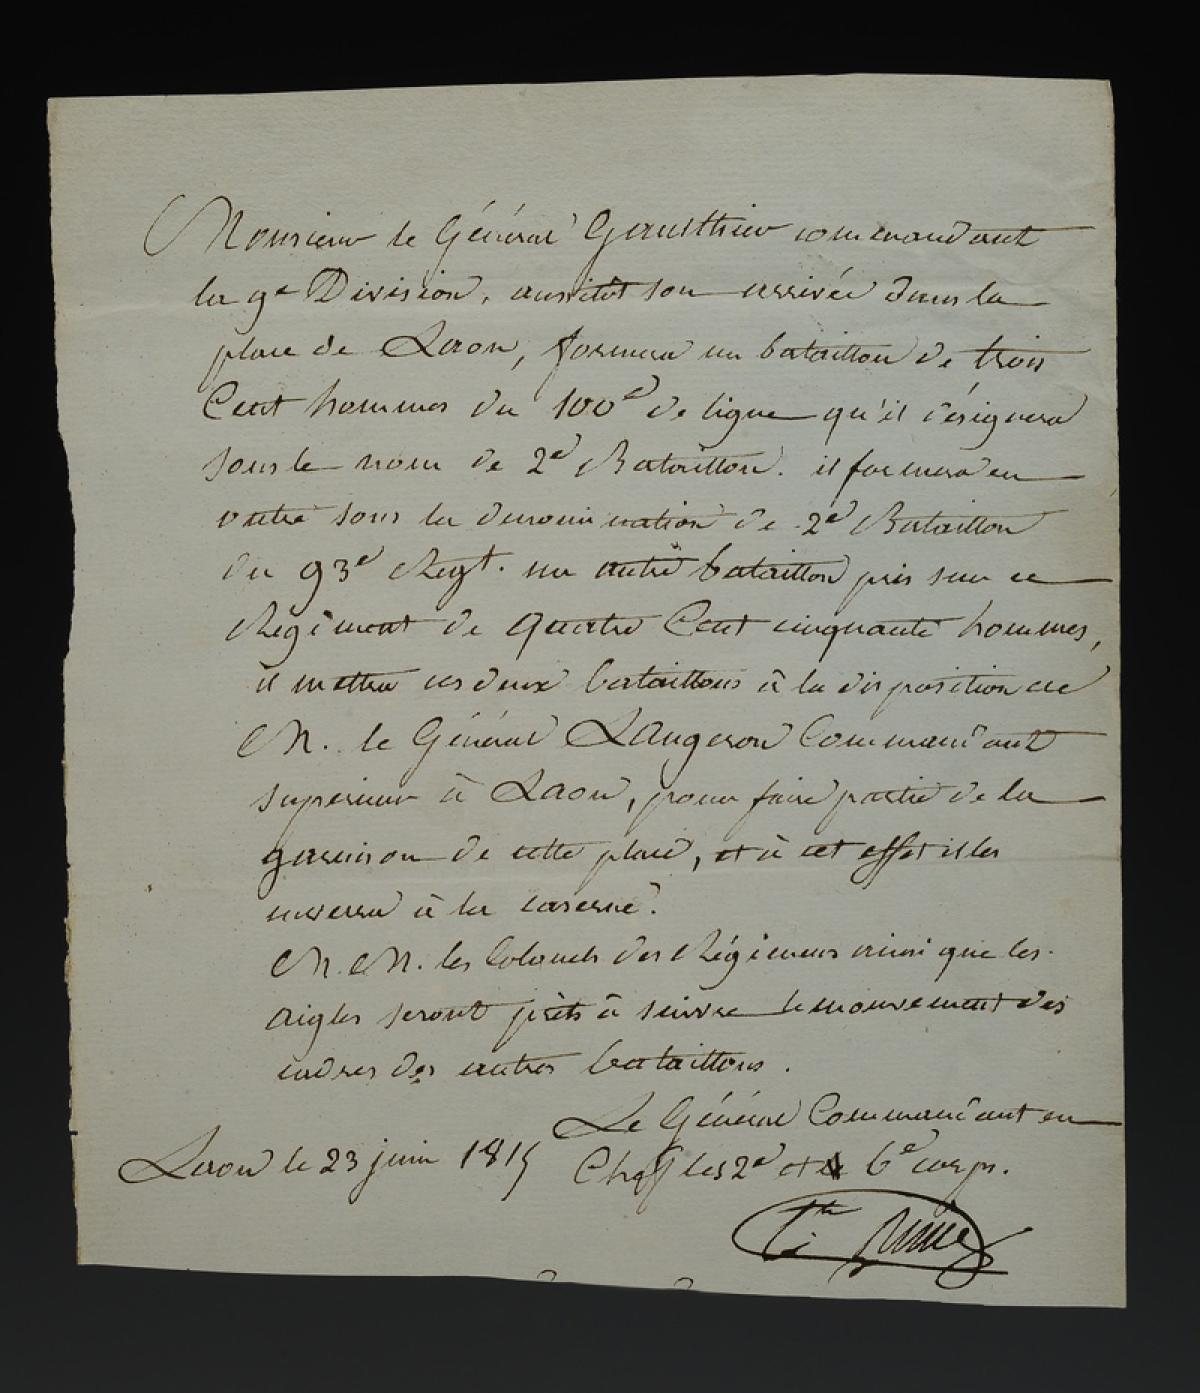 Monsieur le Général Gausthier commandant
la 9e Division, aussitôt son arrivée dans la
place de Laon, formera un bataillon de trois
Cent hommes du 100e de ligne qu'il désignera
sous le nom de 2e Bataillon. il formera en
outre sous la denomination de 2e Bataillon
du 93e Regt. un autre bataillon pris sur ce
Régiment de quatre Cent cinquante hommes,
il mettra ces deux bataillons à la disposition de
M. le Général Langeron Commandant
supérieur à Laon, pour faire partie de la
garnison de cette place, et à cet effet il les
enverra à la caserne.
M. M. les Colonels des Régimens ainsi que les
aigles seront prêts à suivre le mouvement des
cadres des autres bataillons.
Le Général Commandant en
Laon le 23 juin 1815 Chef les 2e et 6e corps.